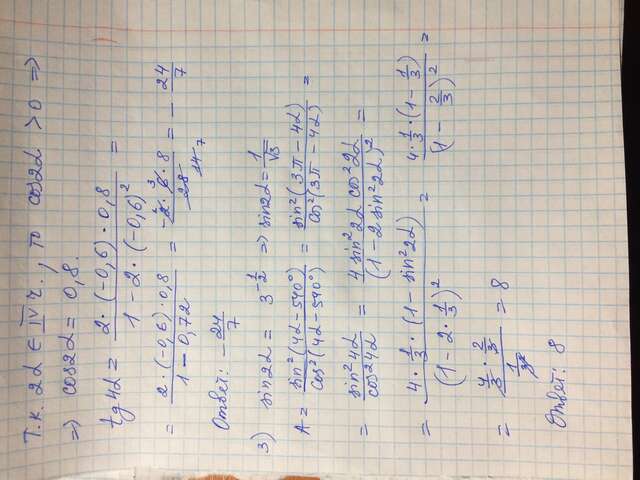 Т.к. 2α ∈ IV ч., то cos2α > 0 ⇒
⇒ cos2α = 0,8.
tg4α = (2·(-0,6)·0,8)/(1-2·(-0,6)²) =
= (2·(-0,6)·0,8)/(1-0,72) = (-2·6·8)/28 = -24/7
Ответ: -24/7
3) sin2α = 3^(-1/2) ⇒ sin2α = 1/√3
A = sin²(4α-540°)/cos²(4α-540°) = sin²(3π-4α)/cos²(3π-4α) =
= sin²4α/cos²4α = 4sin²2α cos²2α/(1-2sin²2α)² =
= (4·1/3·(1-sin²2α))/(1-2·1/3)² = (4·1/3·(1-1/3))/(1-2/3)² =
= (4/3·2/3)/(1/3²) = 8
Ответ: 8